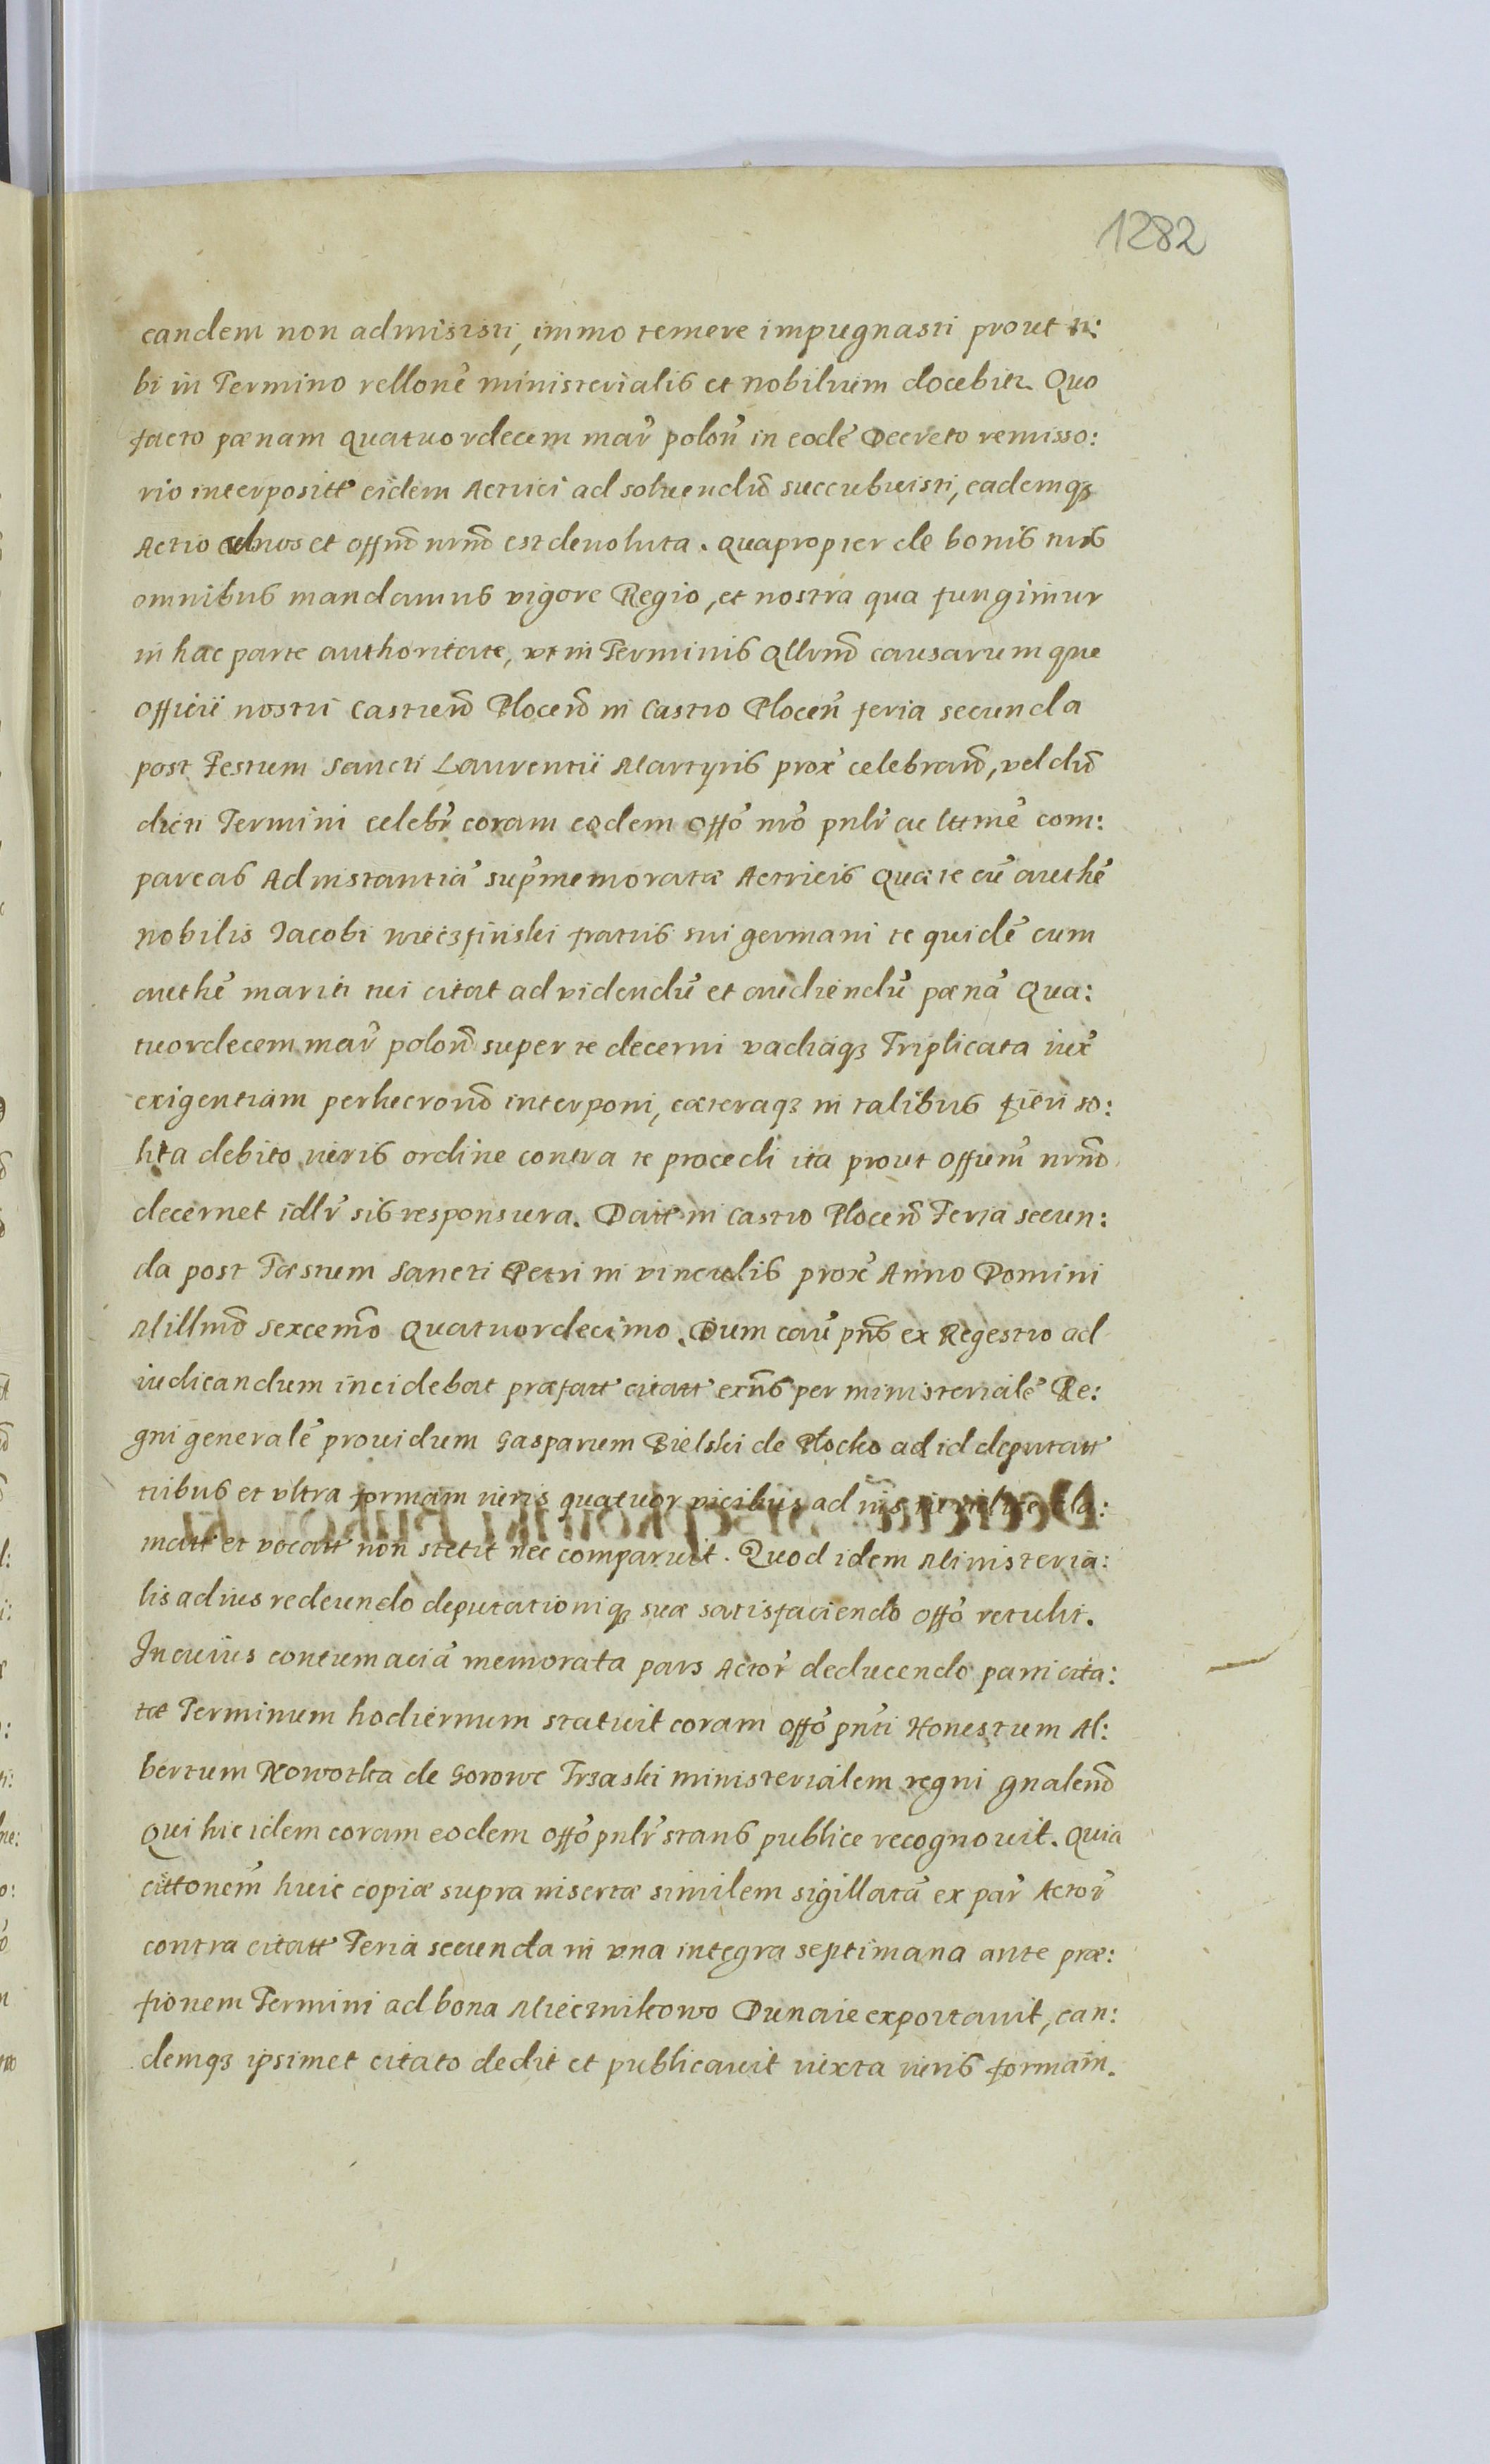 1282
eandem non admisisti, immo temere impugnasti prout ti:
bi in Termino rellone ministerialis et nobilium docebitr. Quo
facto pænam quatuordecem mar polon in eode Decreto remisso:
rio interpositt eidem Actrici ad soluendu succubuisti, eademqз
Actio ad nos et offnd nrnd est deuoluta. Quapropter de bonis tuis
omnibus mandamus vigore Regio, et nostra qua fungimur
in hac parte authoritate, vt in Terminis Qllrnd causarumque
Officii nostri Castren Plocen in Castro Plocen feria secunda
post Festum Sancti Laurentii Martyris prox celebran, vel dum
dicti Termini celebr coram eodem offo nro pnlr ac ltime com:
pareas Ad instantia sup memoratæ Actricis Quæ te cu authe
nobilis Iacobi Mieczſinski fratris sui germani te quide cum
authe mariti tui citat ad videndu et audiendu pæna Qua:
tuordecem mar polon super te decerni vadiaqз Triplicata iux
exigentiam perlucrorum interponi, cæteraqз in talibus fieri so:
lita debito iuris ordine contra te procedi ita prout offium nrnd
decernet idlr sis responsura. Datt in Castro Plocen Feria secun:
da post Fæstum Sancti Petri in vinculis prox Anno Domini
Millmo sexcemo Quatuordecimo. Dum cau pns ex Regestro ad
iudicandum incidebat præfatt citatt exns per ministeriale Re:
gni generale prouidum Gasparum Bielski de Plocko ad id deputatt
tribus et vltra formam iuris quatuor vicibus ad ius cla:
matt et vocatt non stetit nec comparuit. Quod idem Ministeria:
lis ad ius redeundo deputationiqз suæ satisfaciendo offo retulit.
In cuius contumacia memorata pars Actor deducendo parti cita:
tæ Terminum hodiernum statuit coram offo pnti Honestum Al:
bertum Nowotka de Gorowe Trzaski ministerialem regni gnalem
Qui hic idem coram eodem offo pnlr stans publice recognouit. Quia
cittonem huic copiæ supra insertæ similem sigillata ex par Actor
contra citatt Feria secunda in vna integra septimana ante præ:
fionem Termini ad bona Miecznikowo Dunaie exportauit, ean:
demqз ipsimet citato dedit et publicauit iuxta iuris formam.